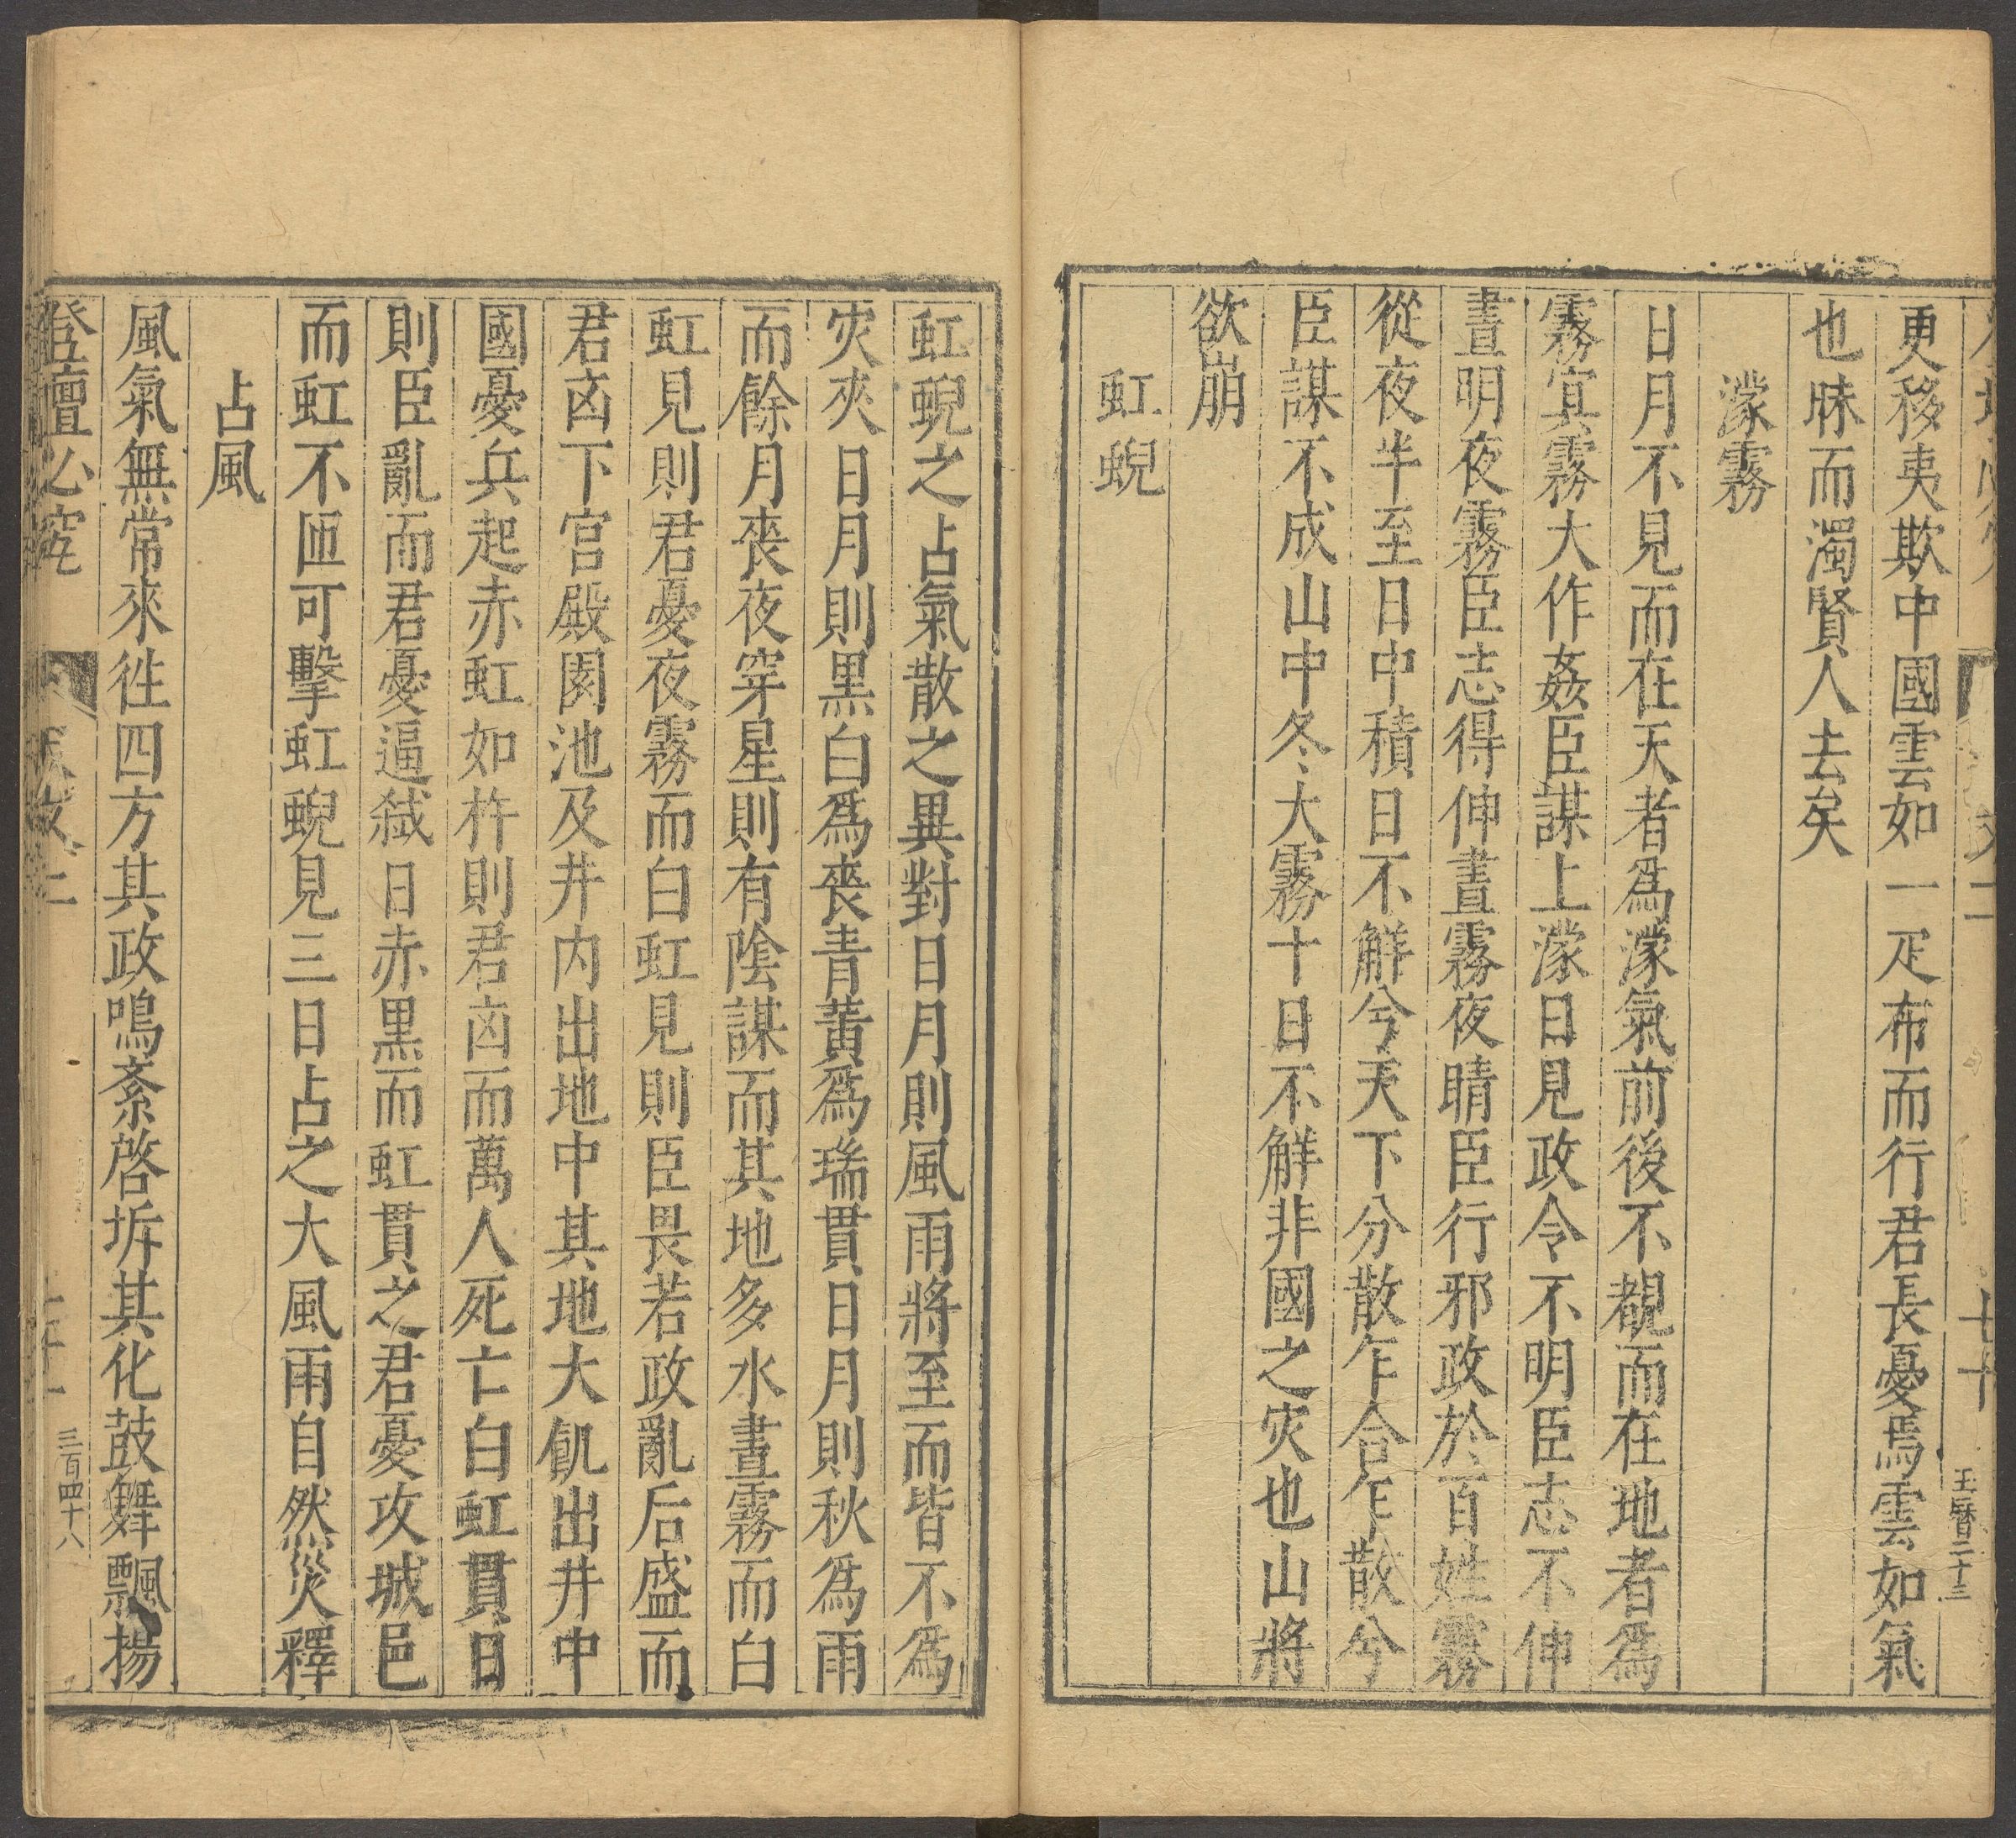 更移夷欺中國雲如一疋布而行君長憂焉雲如氣
也昧而濁賢人去矣
濛霧
日月不見而在天者爲濛氣前後不覩而在地者爲
霧冥霧大作姦臣謀上濛日見政令不明臣志不伸
晝明夜霧臣志得伸晝霧夜晴臣行邪政於百姓霧
從夜半至日中積日不觧兮天下分散乍合乍散兮
臣謀不成山中冬大霧十日不觧非國之灾也山將
欲崩
虹蜺
虹蜺之占氣散之異對日月則風雨將至而皆不爲
灾夾日月則黑白爲喪青黃爲瑞貫日月則秋爲雨
而餘月喪夜穿星則有陰謀而其地多水晝霧而白
虹見則君憂夜霧而白虹見則臣畏若政亂后盛而
君㐫下宫殿園池及井内出地中其地大飢出井中
國憂兵起赤虹如杵則君㐫而萬人死亡白虹貫日
則臣亂而君憂逼弑日赤黑而虹貫之君憂攻城邑
而虹不匝可擊虹蜺見三日占之大風雨自然災釋
占風
風氣無常來徃四方其政鳴紊啓坼其化鼓舞飄揚
登壇必究
三百四十八